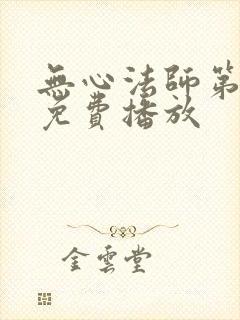 無心法師第
免費播放
金雲堂